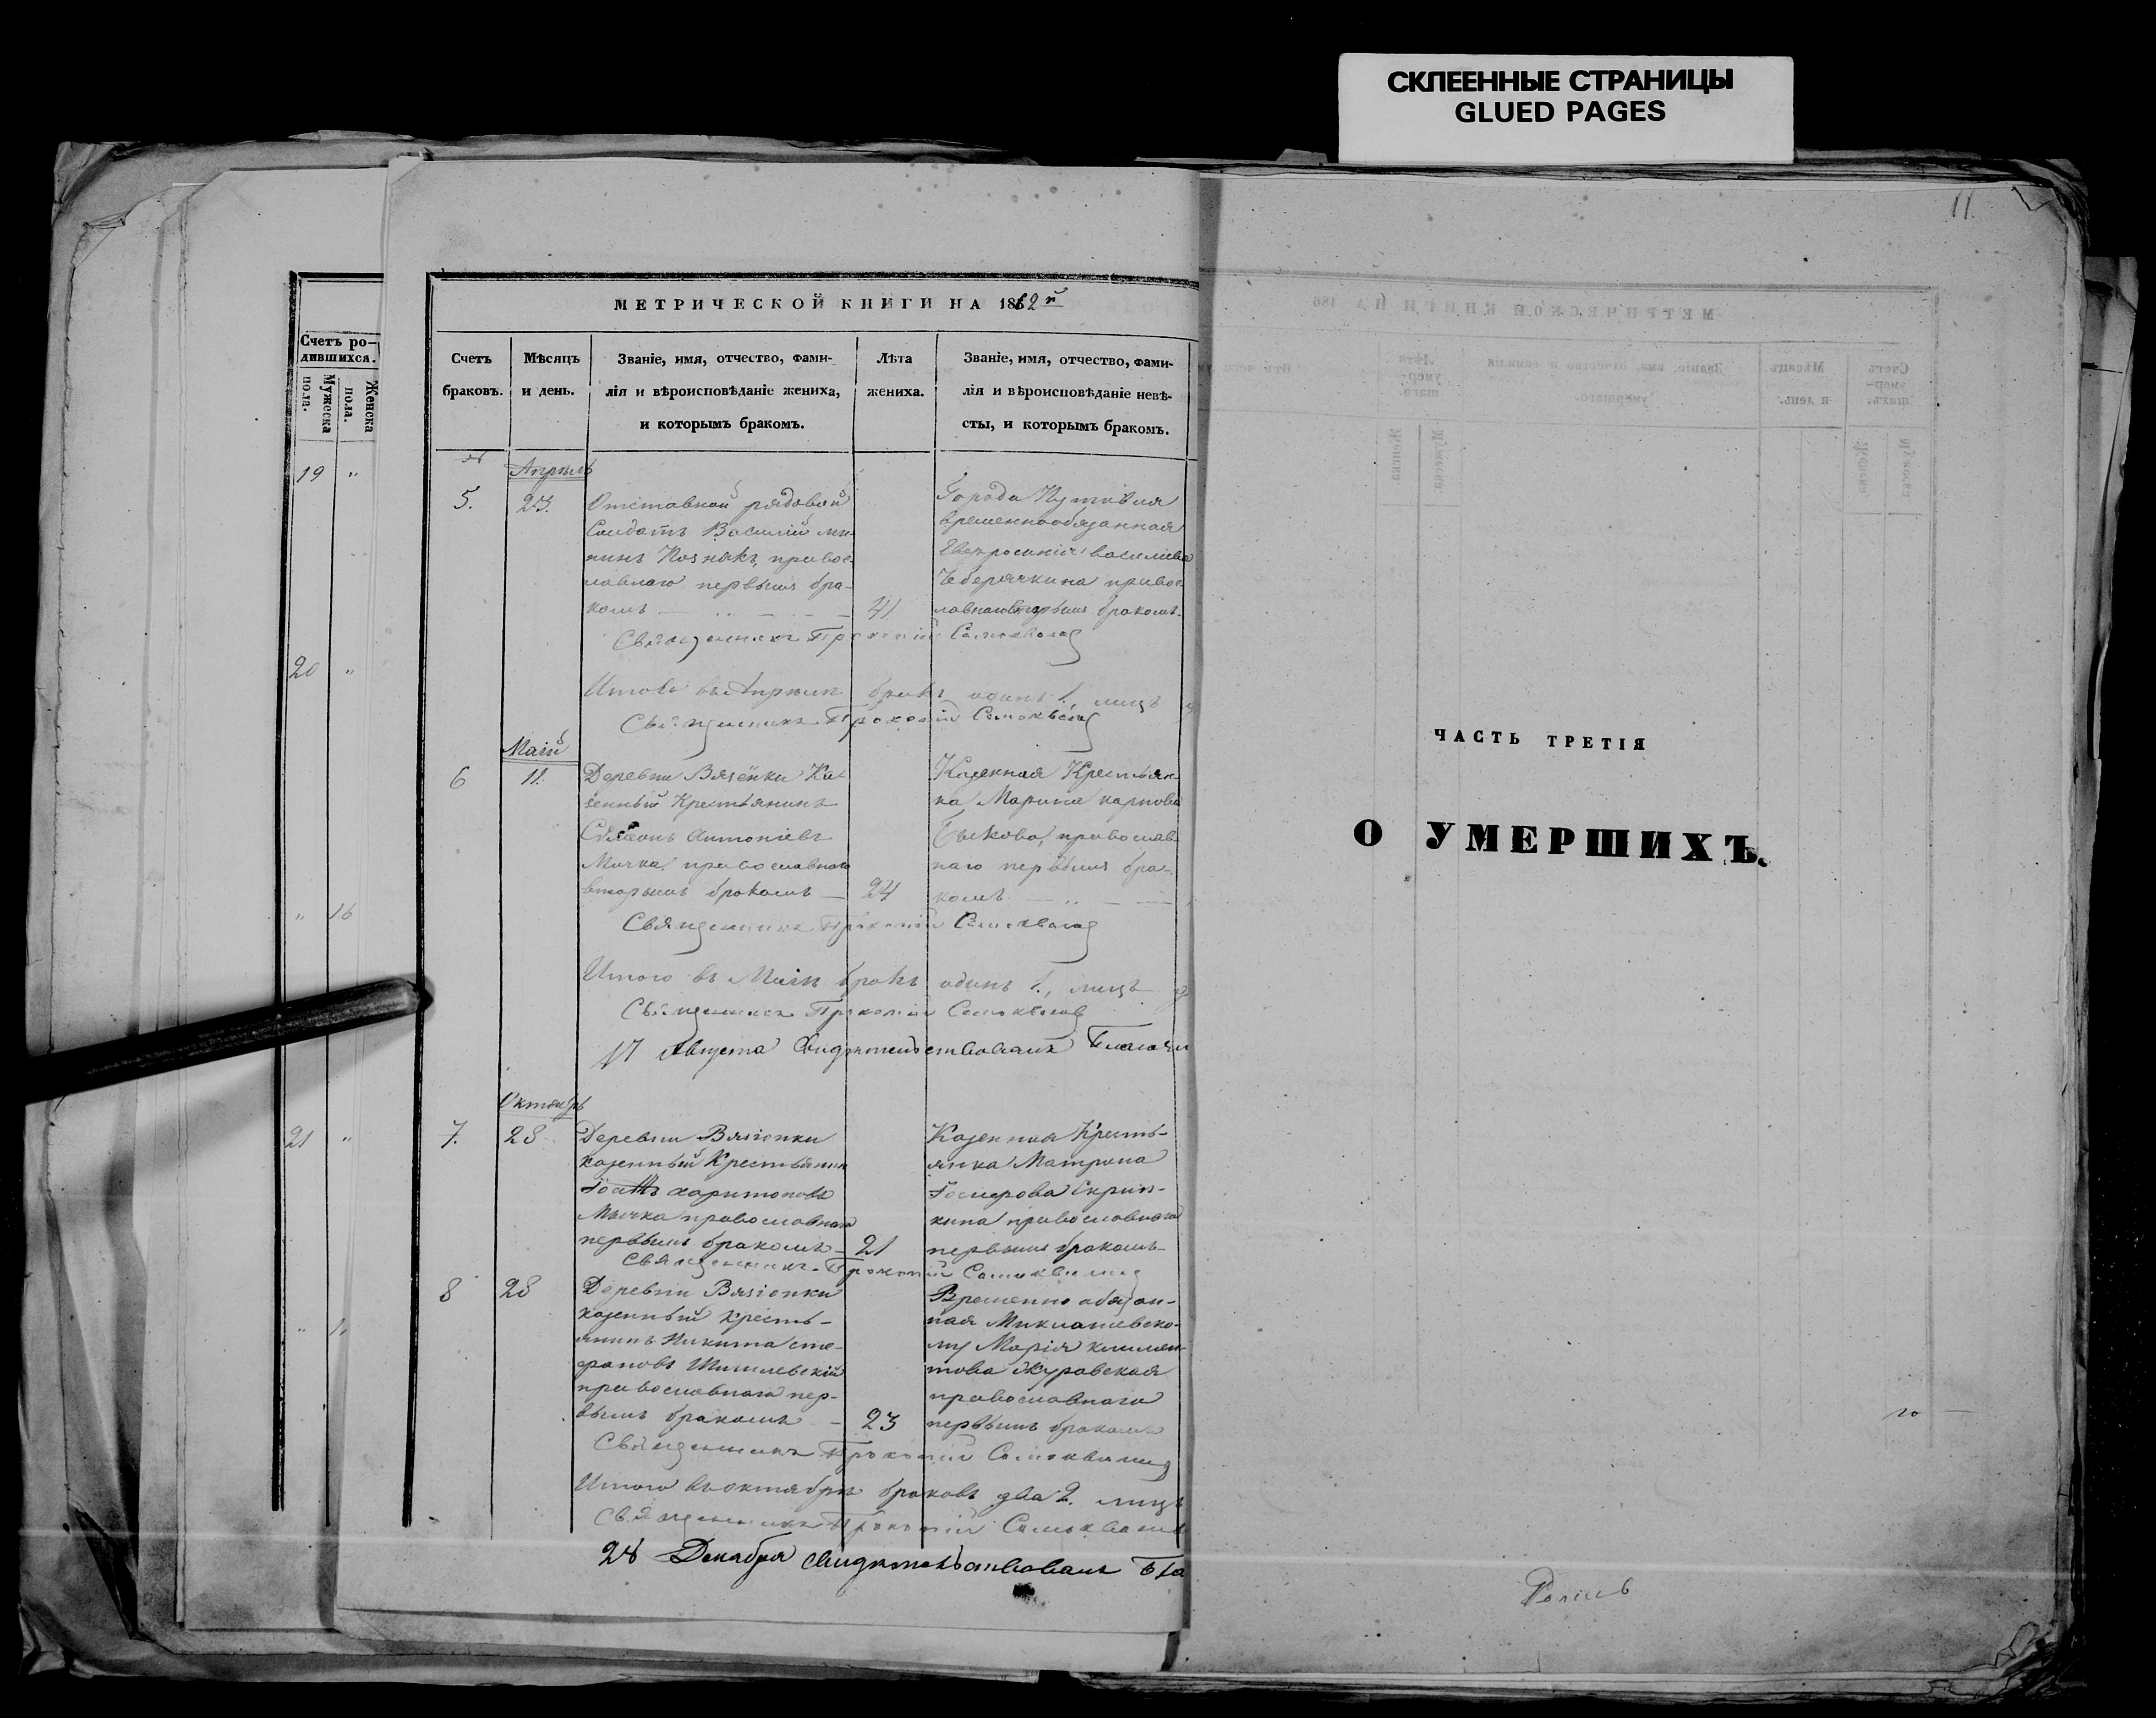 СКЛЕЕННЫЕ СТРАНИЦЫ
GLUED PAGES
11
Счетъ ро-
дившихся.
Мужеска пола.
Женска пола.
19 "
20 "
" 16
21 "
МЕТРИЧЕСКОЙ КНИГИ НА 1862й
Счетъ браковъ.
Мѣсяцъ и день.
Званіе, имя, отчество, фами-
лія и вѣроисповѣданіе жениха,
и которымъ бракомъ.
Лѣта жениха.
Званіе, имя, отчество, фами-
лія и вѣроисповѣданіе невѣ-
сты, и которымъ бракомъ.
Апрѣль
5. 23.
Отставной рядовой
Солдатъ Василій
Позднякъ правос
лавнаго первымъ бра-
комъ 41
Города Путивля
временнообязанная
Евфросинія Василиева
Чеберячкина правос
лавнаго вторымъ бракомъ.
Священникъ Прокопій Самоквасов
Итого въ Апрѣлѣ бракъ одинъ 1, лицъ
Священникъ Прокопій Самоквасов
Маій
6 11.
Деревни Вязёнки Ка-
зенный Крестьянинъ
Антоніевъ
Мичка православнаго
вторымъ бракомъ — 24
Казенная Крестьян-
ка Марина карпова
Быкова, православ
наго первымъ бра-
комъ
Священникъ Прокопій Самоквасов
Итого въ Маіѣ бракъ одинъ 1, лицъ
Священникъ Прокопій Самоквасов
17 Августа Свидѣтельствовалъ
Октябрь
7. 28
Деревни Вязіонки
казенный Крестьянин
харитоновъ
Мычка православнаго
первымъ бракомъ — 21
Казенная Кресть-
янка Матрона
православнаго
первымъ бракомъ
Священникъ Прокопій Самоквасов
8 28
Деревни Вязіонки
казенный кресть-
янинъ Никита сте-
фановъ Шишлевскій
православнаго пер-
вымъ бракомъ — 23
Временно обязан-
ная Миклашевско-
му Марія климен-
това Журовская
православнаго
первымъ бракомъ
Священникъ Прокопій Самоквасов
Итого въ октябрѣ браковъ два 2. лицъ
Священникъ Прокопій Самоквасов
28 Декабря Свидѣтельствовалъ Бла
ЧАСТЬ ТРЕТІЯ
О УМЕРШИХЪ.